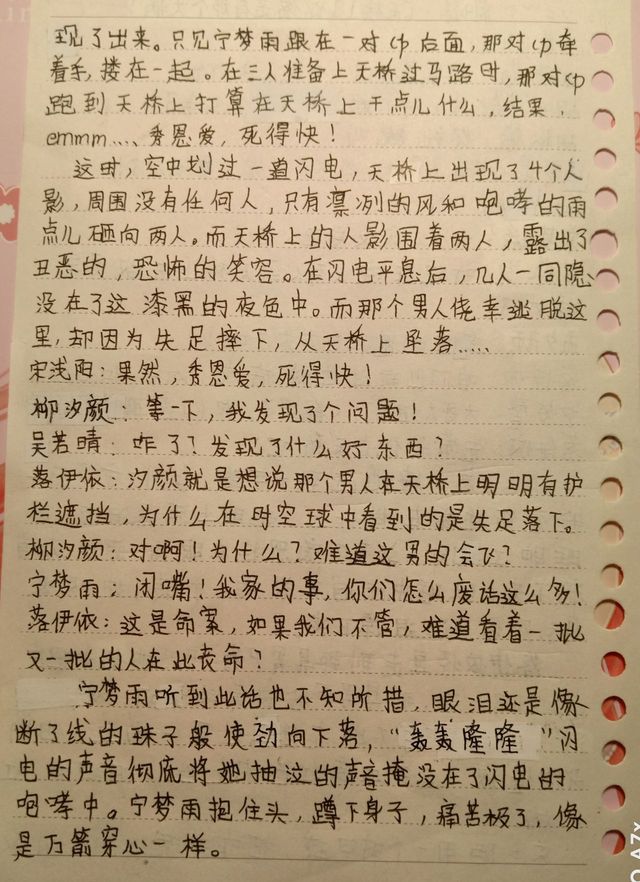 现了出来。只见宁梦雨跟在一对cp后面，那对cp牵
着手，搂在一起。在三人准备上天桥过马路时，那对cp
跑到天桥上打算在天桥上干点儿什么，结果，
emmm...，秀恩爱，死得快！
这时，空中划过一道闪电，天桥上出现了4个人
影，周围没有任何人，只有凛冽的风和咆哮的雨
点儿砸向两人。而天桥上的人影围着两人，露出了
丑恶的，恐怖的笑容。在闪电平息后，几人一同隐
没在了这漆黑的夜色中。而那个男人侥幸逃脱这
里，却因为失足摔下，从天桥上坠落.....
宋浅阳：果然，秀恩爱，死得快！
柳汐颜：等一下，我发现了个问题！
吴若晴：咋了？发现了什么好东西？
落伊依：汐颜就是想说那个男人在天桥上明明有护
栏遮挡，为什么在时空球中看到的是失足落下。
柳汐颜：对啊！为什么？难道这男的会飞？
宁梦雨：闭嘴！我家的事，你们怎么废话这么多！
落伊依：这是命案，如果我们不管，难道看着一批
又一批的人在此丧命？
宁梦雨听到此话也不知所措，眼泪还是像
断了线的珠子般使劲向下落，“轰轰隆隆”闪
电的声音彻底将她抽泣的声音掩没在了闪电的
咆哮中。宁梦雨抱住头，蹲下身子，痛苦极了，像
是万箭穿心一样。